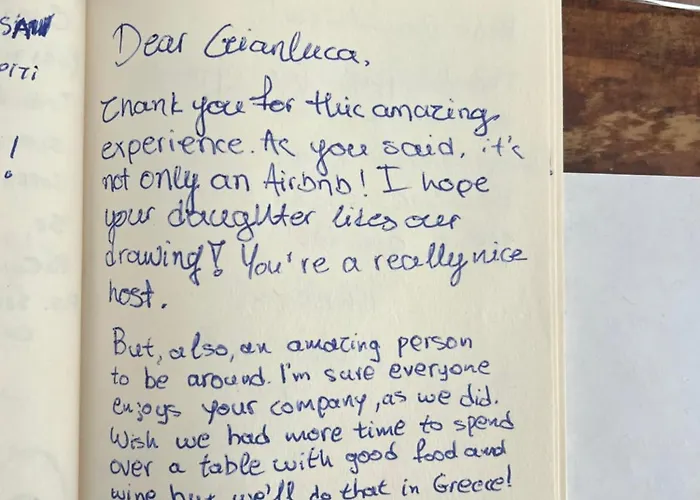 SAW
piti
!
Dear Gianluca,
Thank you for this amazing
experience. As you said, it's
not only an Airbnb! I hope
your daughter likes our
drawing! You're a really nice
host.
But, also, an amazing person
to be around. I'm sure everyone
enjoys your company, as we did.
Wish we had more time to spend
over a table with good food and
wine but we'll do that in Greece!